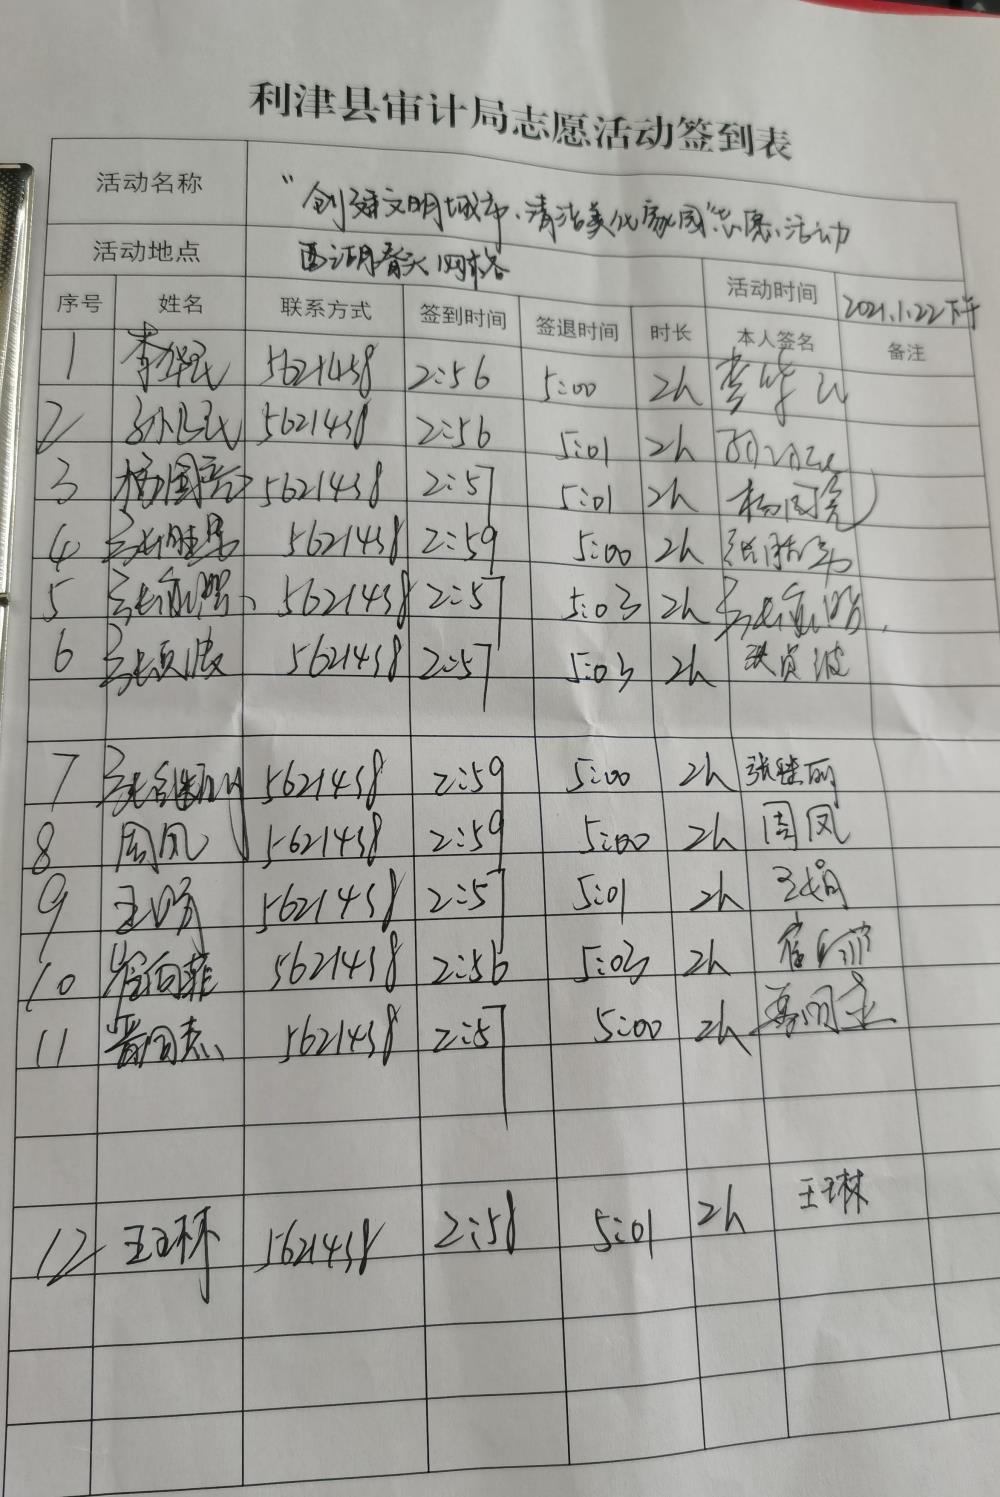 利津县审计局志愿活动签到表
活动名称 "创建文明城市、清洁美化家园"志愿活动
活动地点 网格 活动时间 2021.1.22下午
序号 姓名 联系方式 签到时间 签退时间 时长 本人签名 备注
1 李华民 5621438 2:56 5:00 2h 李华民
2 5621438 2:56 5:01 2h
3 杨国亮 5621438 2:57 5:01 2h 杨国亮
4 5621438 2:59 5:00 2h
5 5621438 2:57 5:03 2h
6 5621438 2:57 5:03 2h
7 张继丽 5621438 2:59 5:00 2h 张继丽
8 周凤 5621438 2:59 5:00 2h 周凤
9 王娟 5621438 2:57 5:01 2h 王娟
10 5621438 2:56 5:03 2h
11 5621438 2:57 5:00 2h
12 王琳 5621438 2:58 5:01 2h 王琳